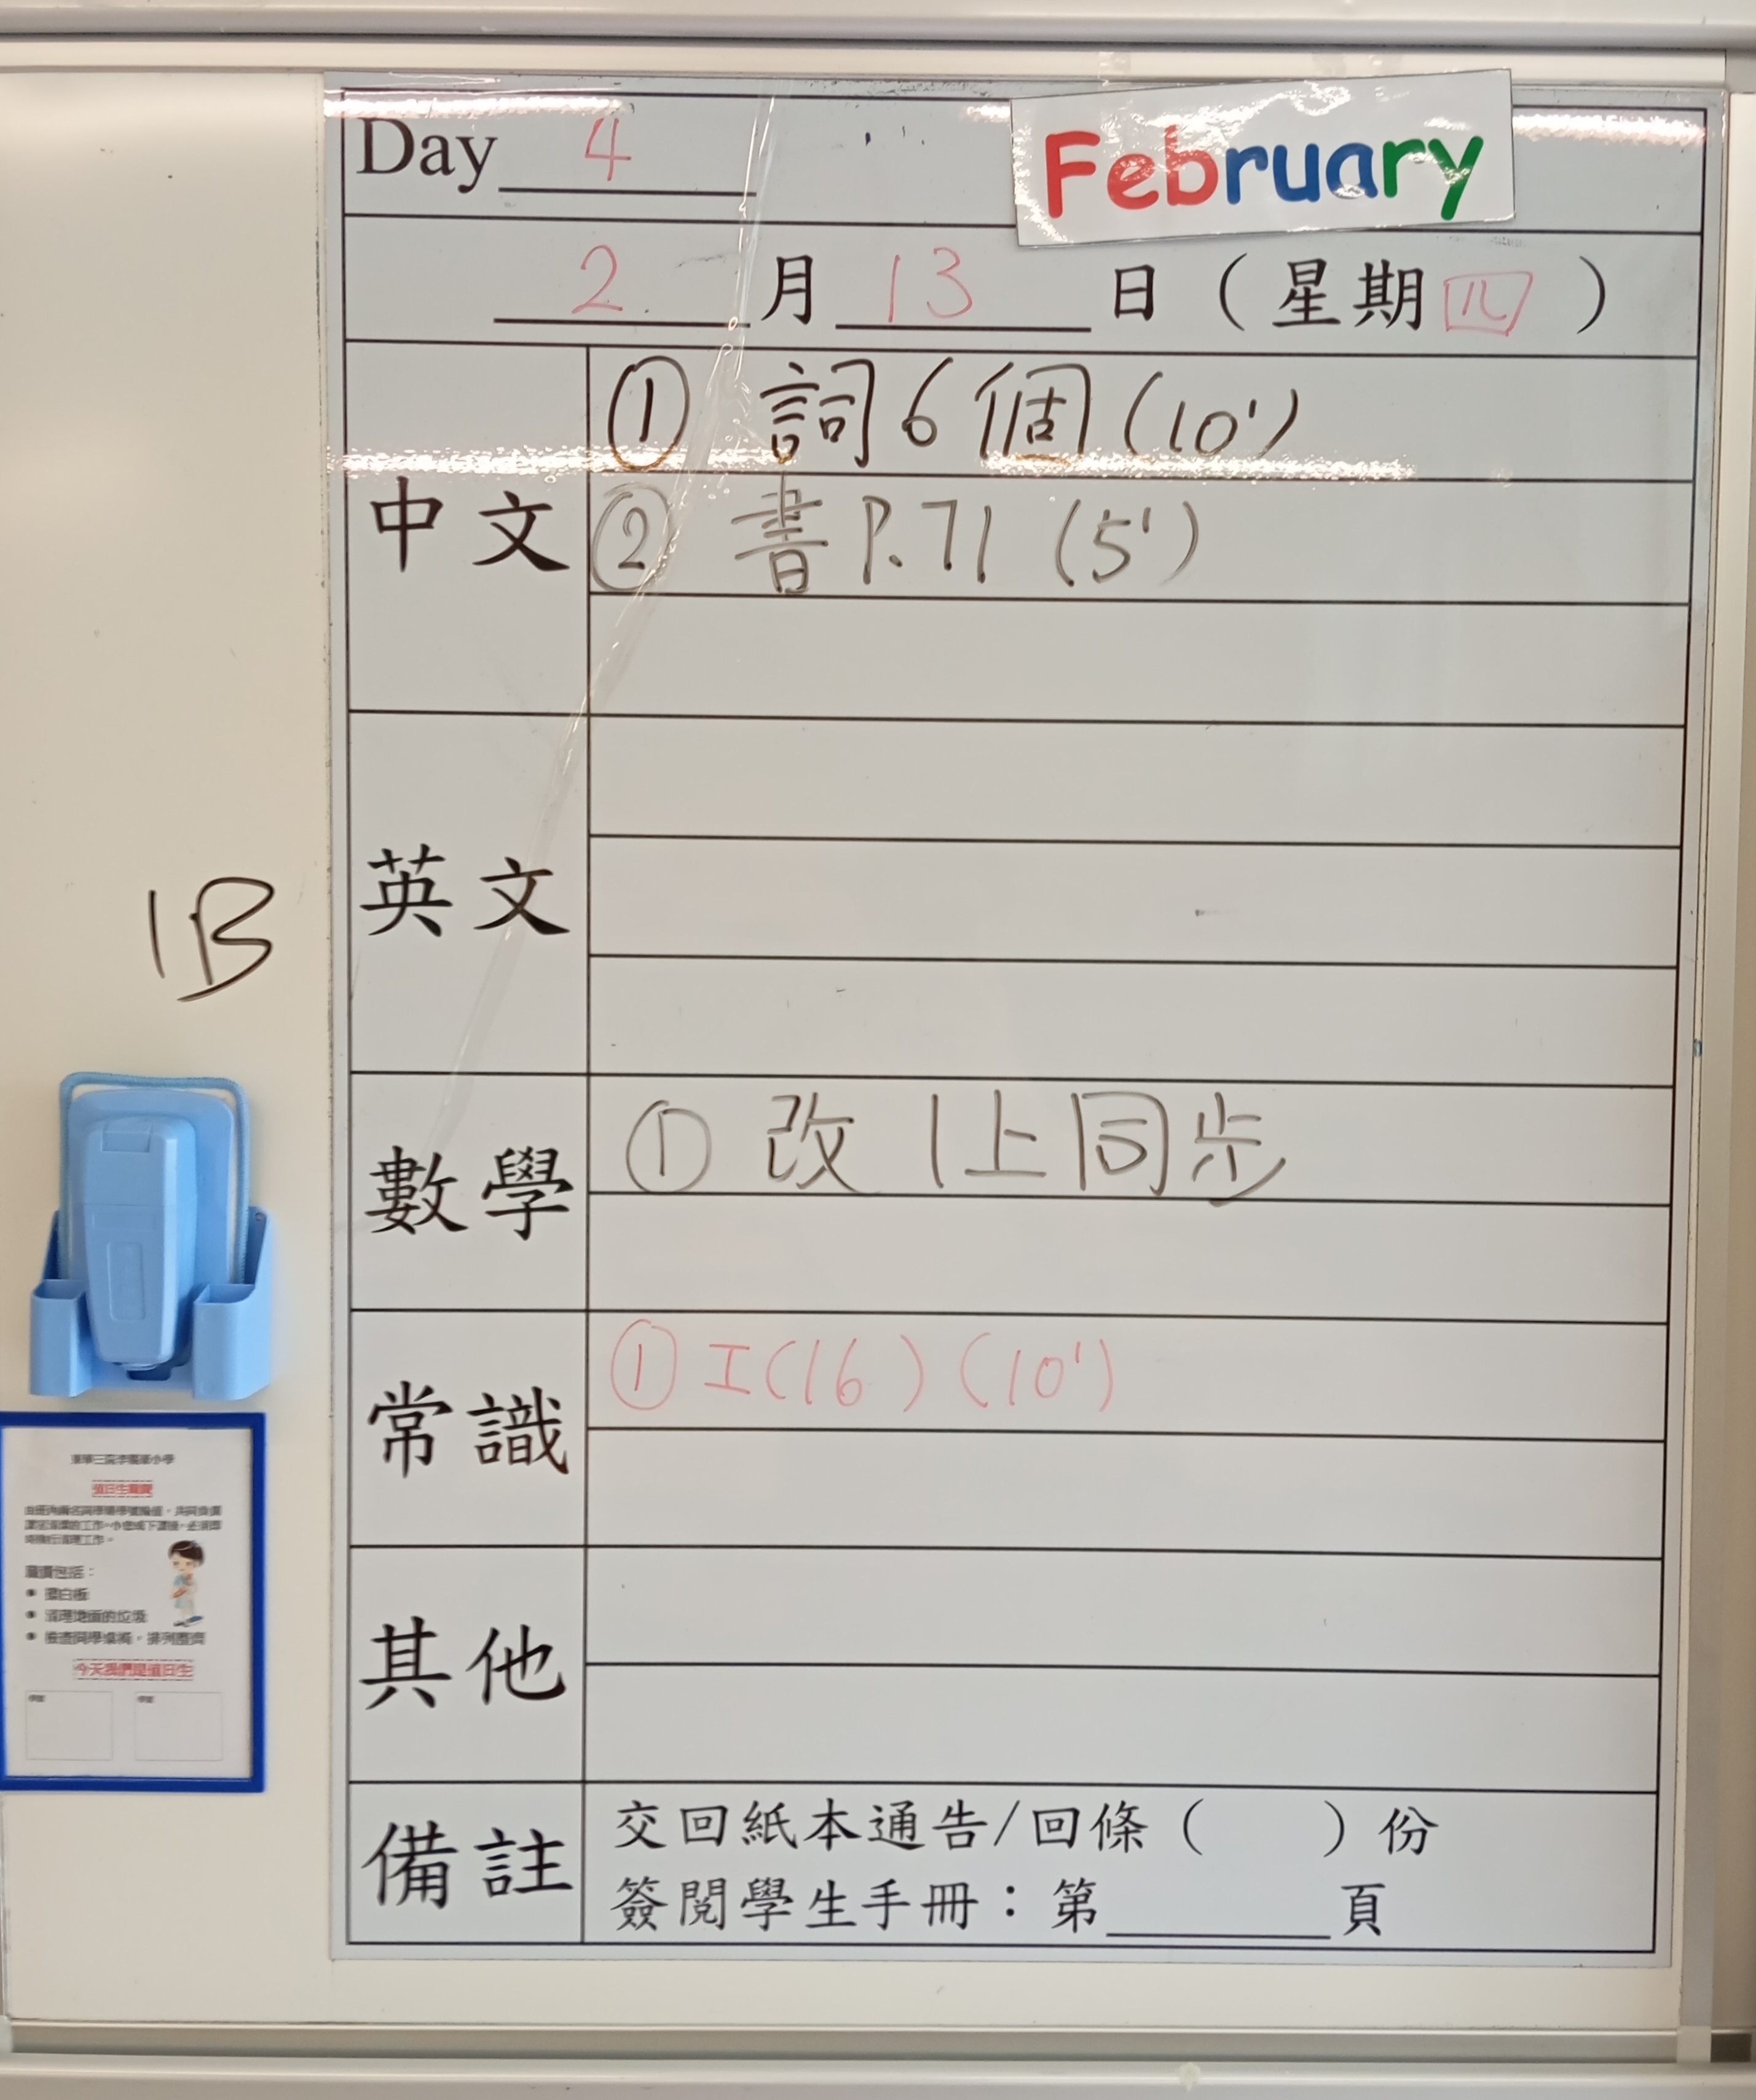 Day 4
February
2 月 13 日 (星期四)
中文
① 詞6個(10')
② 書P.71 (5')
英文
數學
① 改 1上同步
常識
① I(16) (10')
其他
備註
交回紙本通告/回條( )份
簽閱學生手冊：第 頁
1B
值日生職責
職責包括：
擦白板
清理地面的垃圾
今天我們是值日生